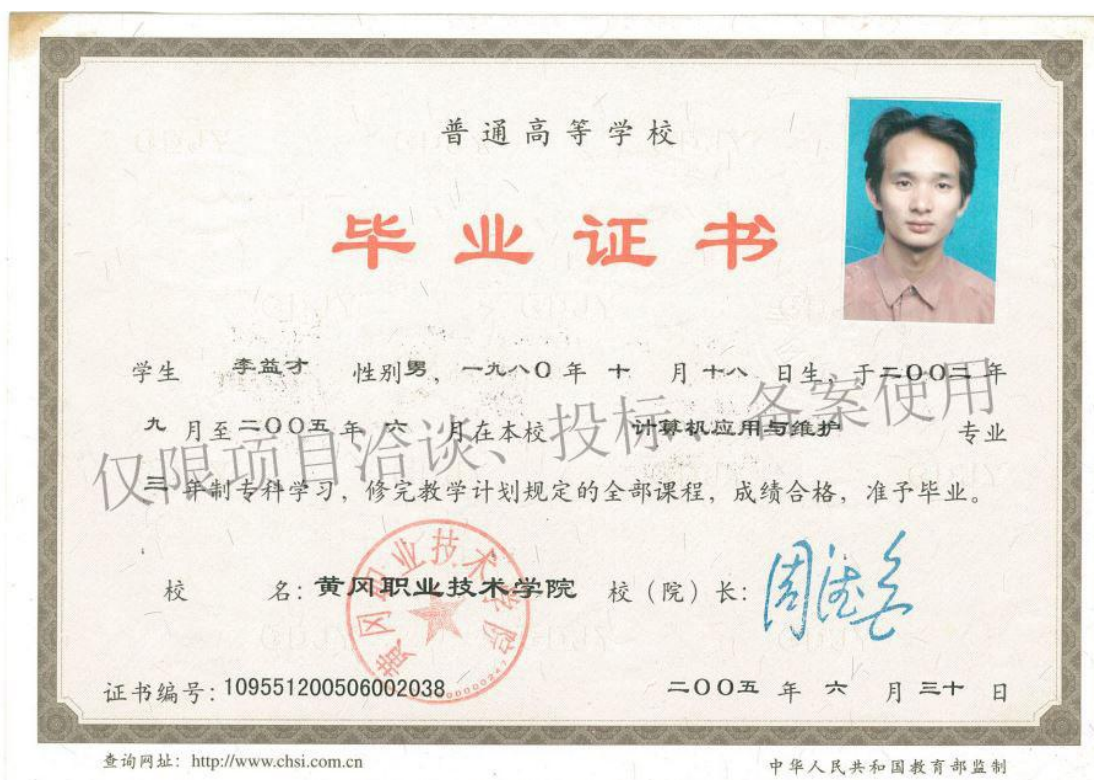 普通高等学校
毕业证书
学生 李益才 性别男，一九八〇年 十 月十八 日生，于二〇〇二年
九 月至二〇〇五年 六 月在本校 计算机应用与维护 专业
三 年制专科学习，修完教学计划规定的全部课程，成绩合格，准予毕业。
仅限项目洽谈、投标、备案使用
校 名：黄冈职业技术学院 校（院）长：
黄冈职业技术学院
证书编号：109551200506002038 二〇〇五 年 六 月 三十 日
查询网址：http://www.chsi.com.cn 中华人民共和国教育部监制